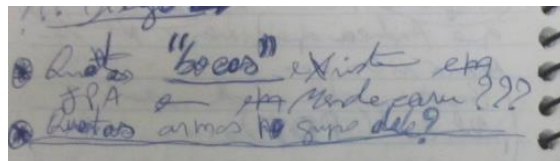 Quotas "bocas" existem em
JPA e em Mandacaru???
Quotas armas no grupo dele?